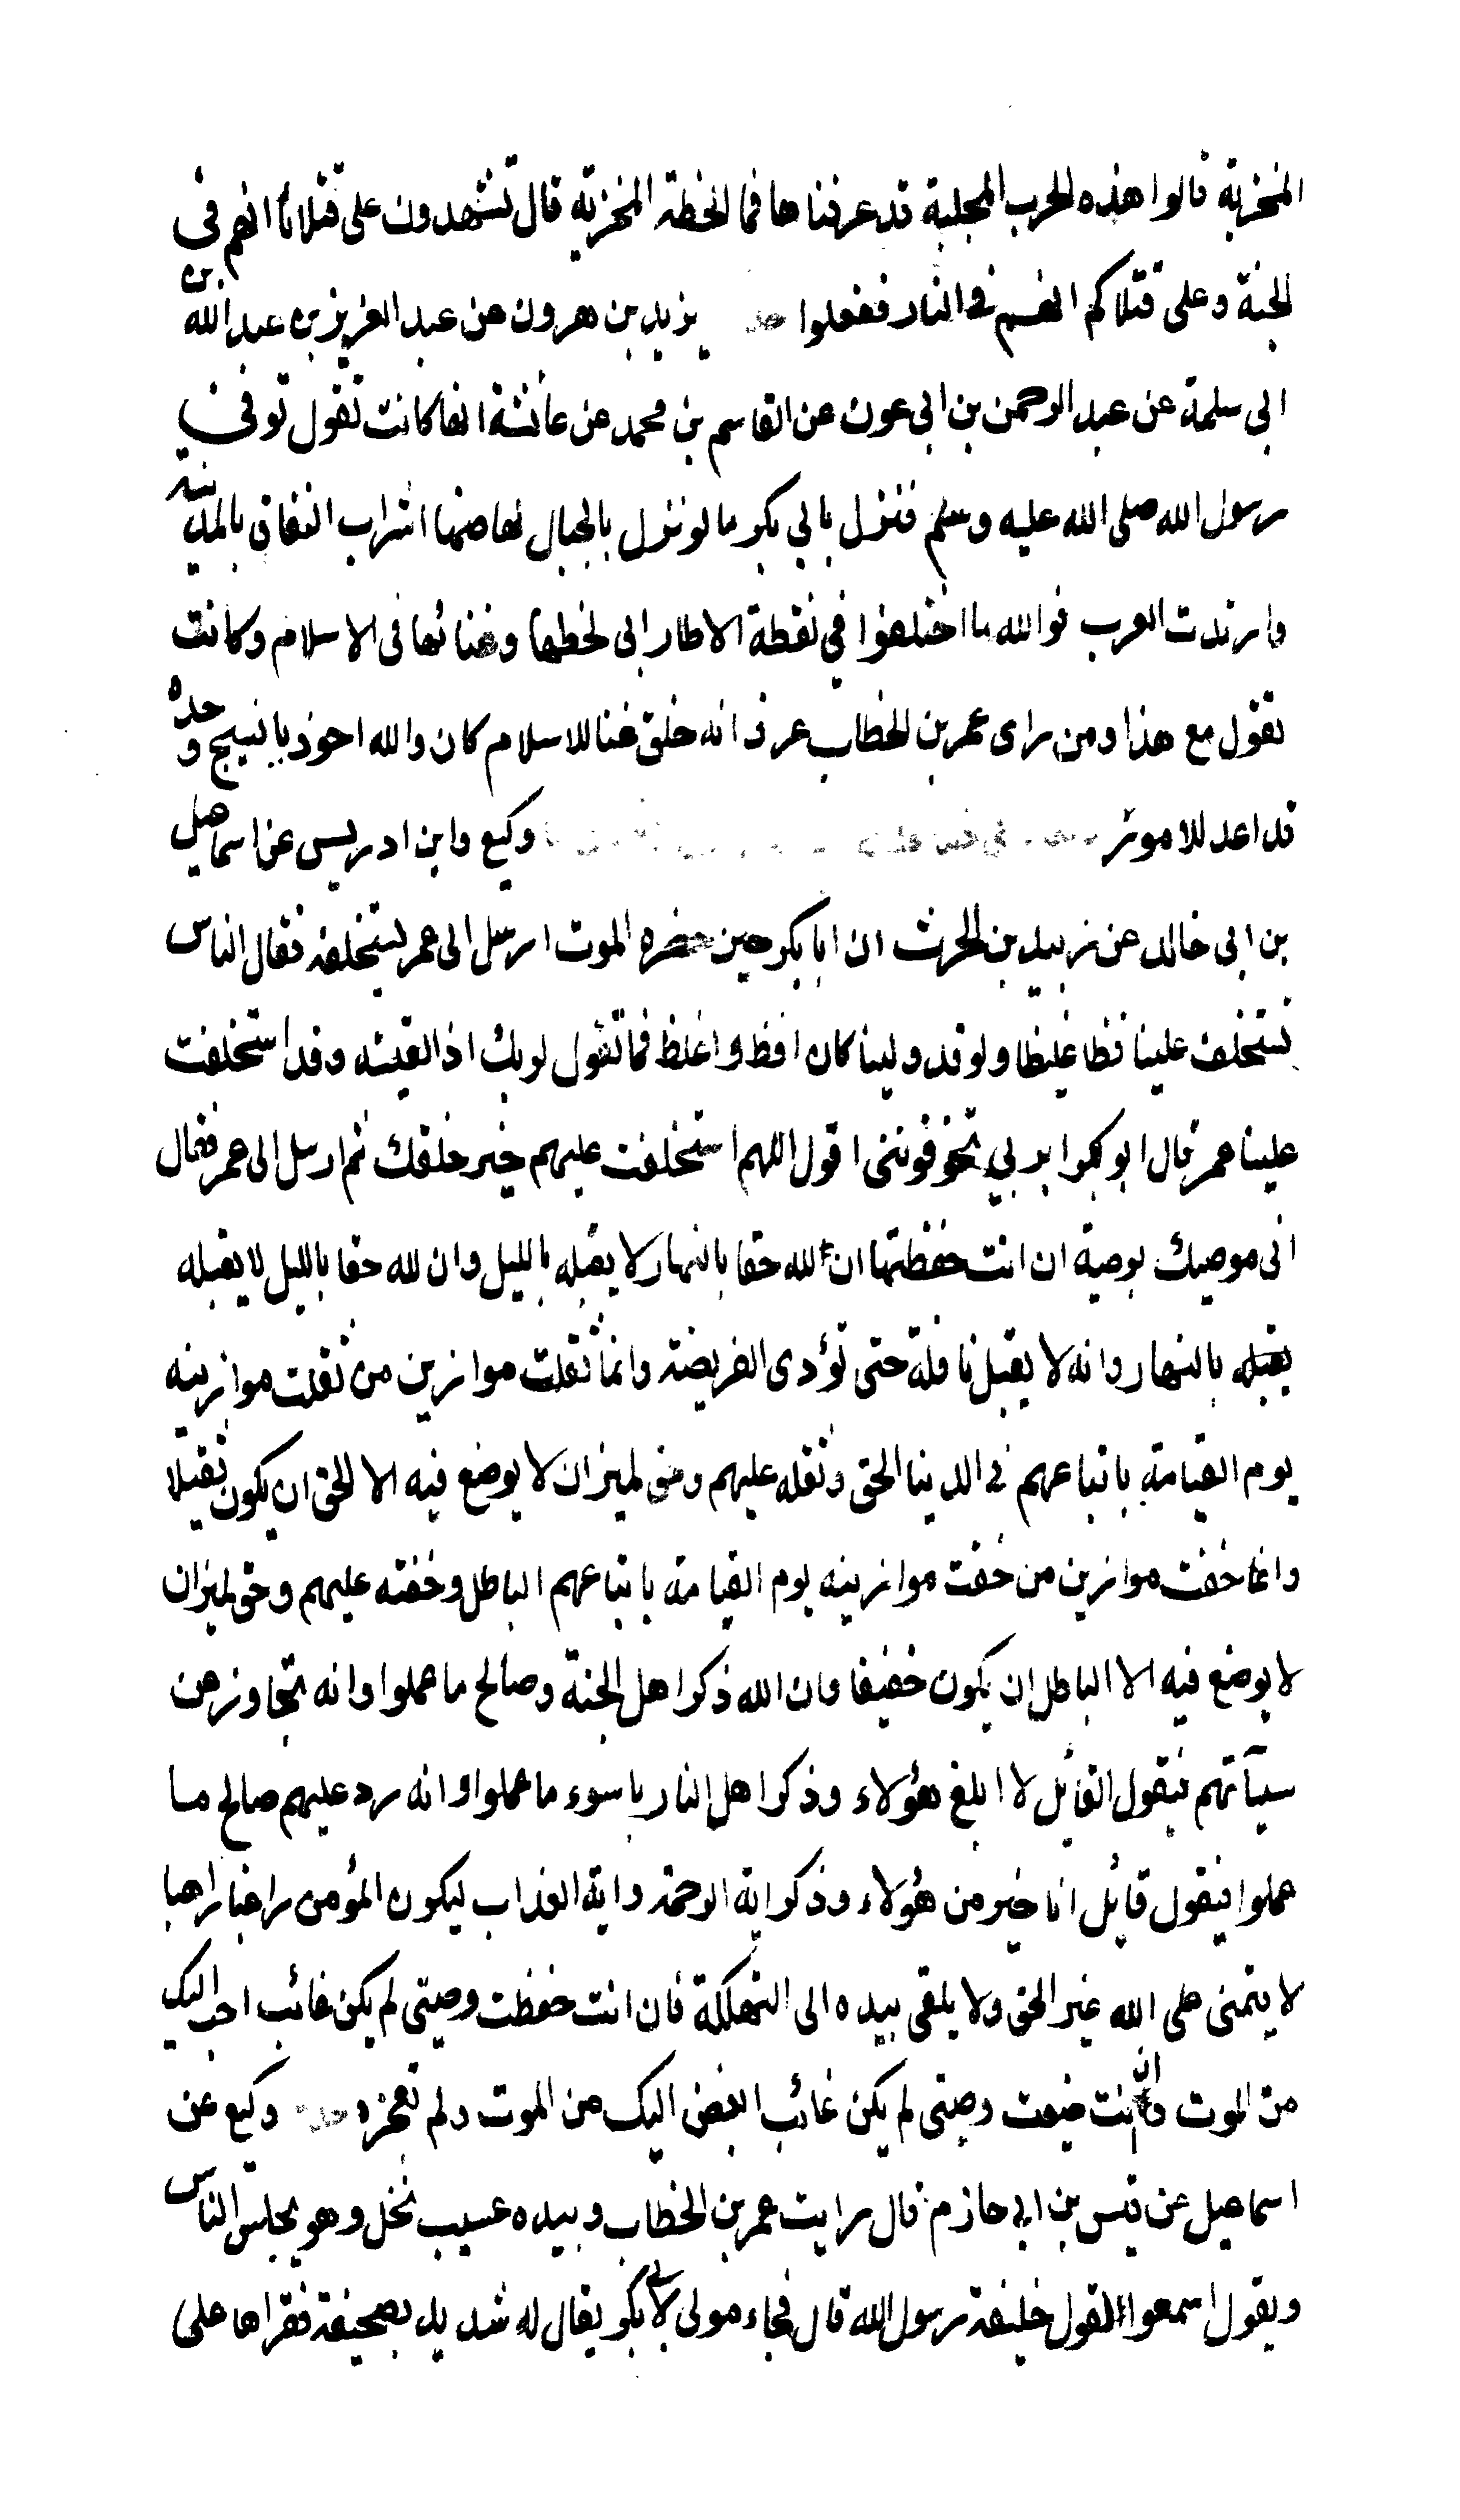 المخزية قالوا هذه الحرب المجلية قد عرفناها فما الخطة المخزية قال تشهدون على قتلانا انهم في
الجنة وعلى قتلاكم انهم في النار ففعلوا يزيد بن هرون عن عبد العزيز بن عبد الله بن
ابي سلمة عن عبد الرحمن بن ابي عون عن القاسم بن محمد عن عائشة انها كانت تقول توفي
رسول الله صلى الله عليه وسلم فنزل بابي بكر ما لو نزل بالجبال لهاضها اشراب النفاق بالمدينة
وارتدت العرب فوالله ما اختلفوا في نقطة الا طار ابي لحظها وغنائها في الاسلام وكانت
تقول مع هذا ومن راى عمر بن الخطاب عرف انه خلق غنا للاسلام كان والله احوذيا نسيج وحده
قد اعد للامور وكيع وابن ادريس عن اسماعيل
بن ابي خالد عن زبيد بن الحرث ان ابا بكر حين حضره الموت ارسل الى عمر ليستخلفه فقال الناس
تستخلف علينا فظا غليظا ولو قد ولينا كان افظ واغلظ فما تقول لربك اذا لقيته وقد استخلفت
علينا عمر قال ابو بكر ابربي تخوفونني اقول اللهم استخلفت عليهم خير خلقك ثم ارسل الى عمر فقال
اني موصيك بوصية ان انت حفظتها ان لله حقا بالنهار لا يقبله بالليل وان لله حقا بالليل لا يقبله
يقبله بالنهار وانه لا يقبل نافلة حتى تؤدى الفريضة وانما ثقلت موازين من ثقلت موازينه
يوم القيامة باتباعهم في الدينا الحق وثقله عليهم وحق لميزان لا يوضع فيه الا الحق ان يكون ثقيلا
وانما خفت موازين من خفت موازينه يوم القيامة باتباعهم الباطل وخفته عليهم وحق لميزان
لا يوضع فيه الا الباطل ان يكون خفيفا وان الله ذكر اهل الجنة وصالح ما عملوا وانه تجاوز عن
سيآتهم فيقول القائل لا ابلغ هؤلاء وذكر اهل النار باسوء ما عملوا وانه رد عليهم صالح ما
عملوا فيقول قايل انا خير من هؤلاء وذكر اية الرحمة واية العذاب ليكون المؤمن راغبا راهبا
لا يتمنى على الله غير الحق ولا يلقى بيده الى التهلكة فان انت حفظت وصيتي لم يكن غائب احب اليك
من الموت وان انت ضيعت وصيتي لم يكن غائب ابغض اليك من الموت ولم تعجزه وكيع عن
اسماعيل عن قيس بن ابي حازم قال رايت عمر بن الخطاب وبيده عسيب نخل وهو يجلس الناس
ويقول اسمعوا لقول خليفة رسول الله قال فجاء مولى لابي بكر يقال له شديد بصحيفة فقراها على